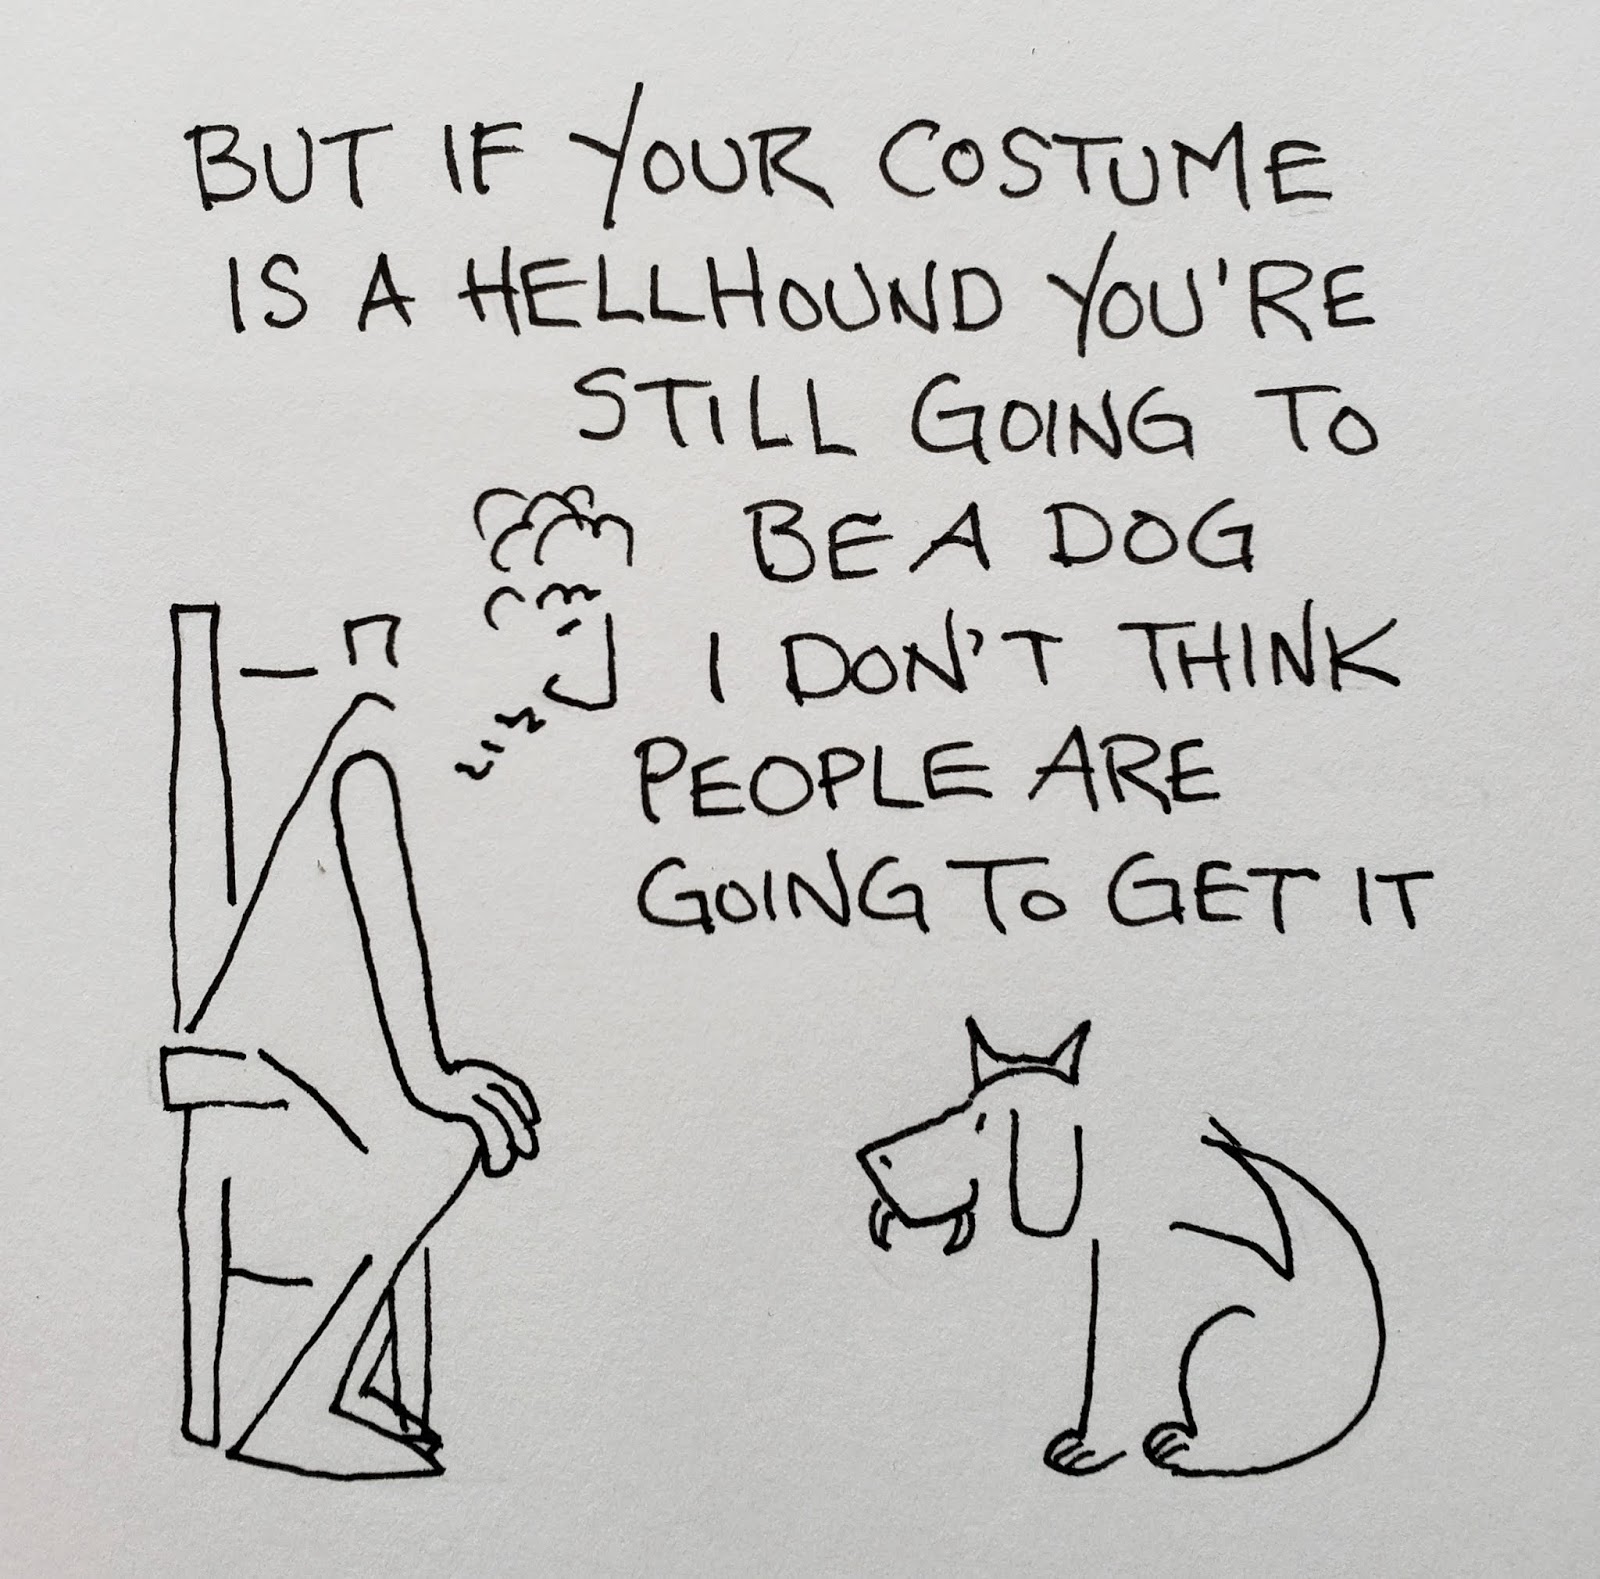 BUT IF YOUR COSTUME
IS A HELLHOUND YOU'RE
STILL GOING TO
BE A DOG
I DON'T THINK
PEOPLE ARE
GOING TO GET IT